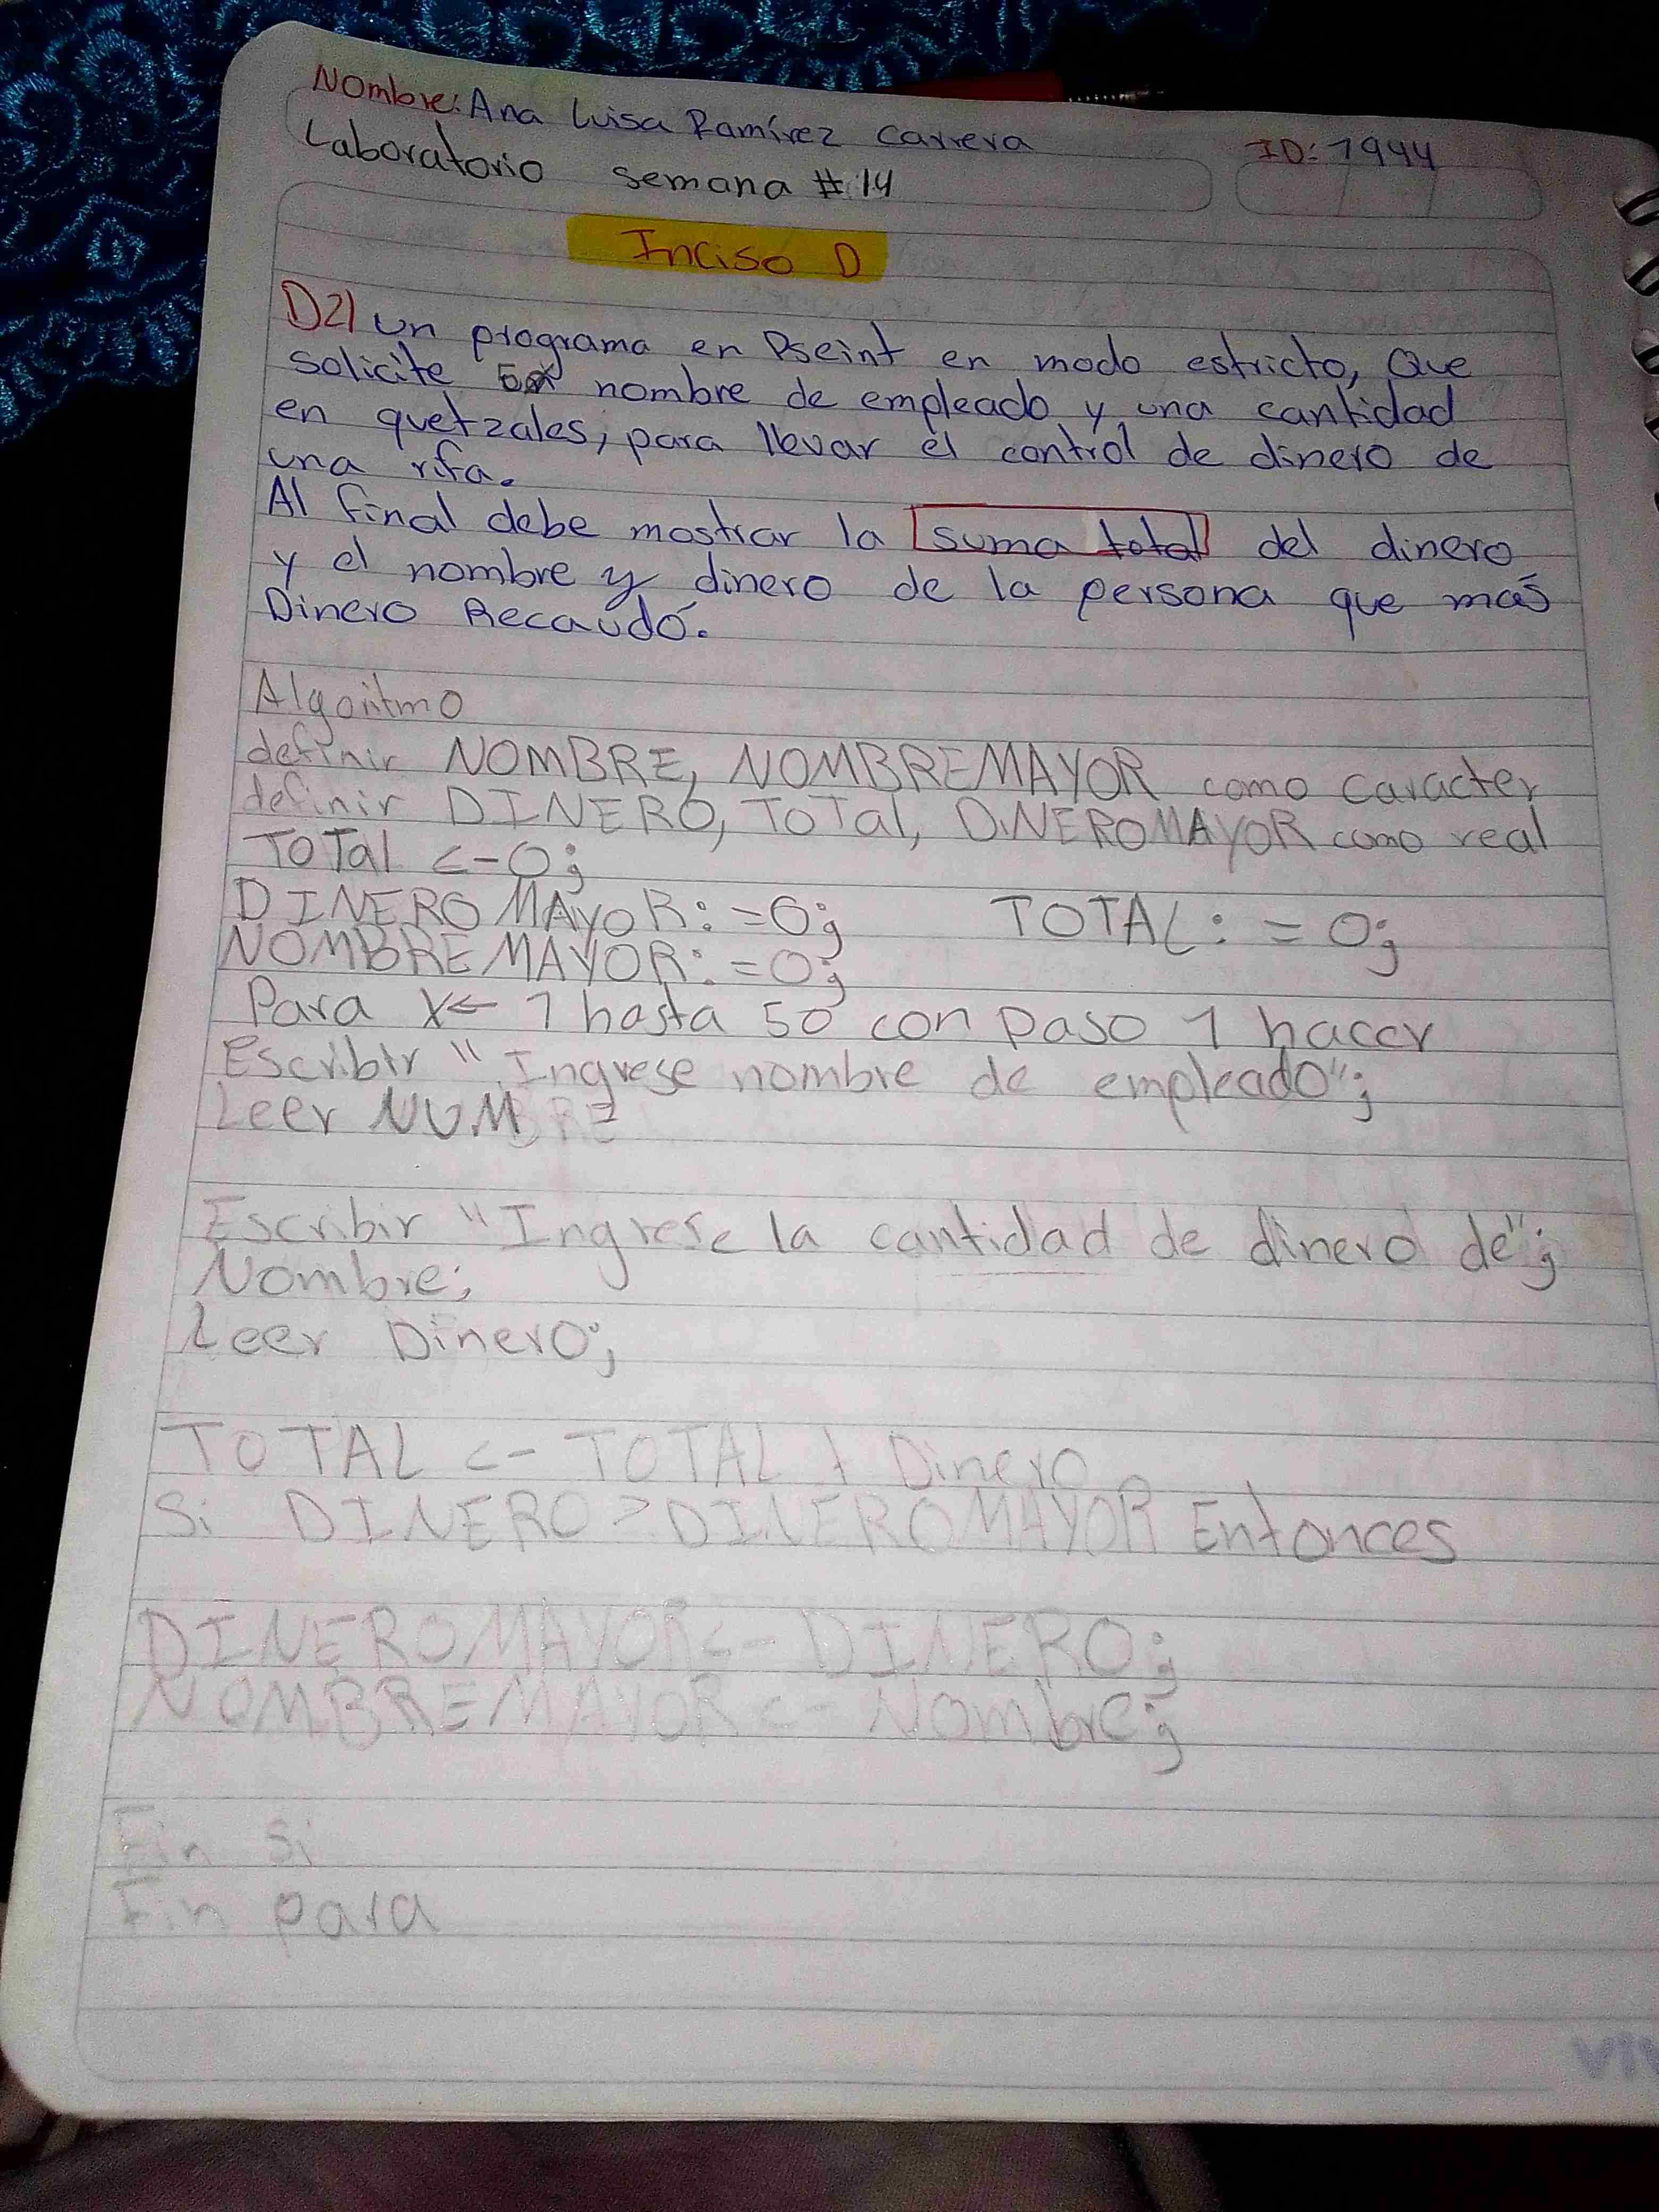 Nombre: Ana Luisa Ramírez Carrera
ID: 1944
Laboratorio semana #14
Inciso D
D2) un programa en Pseint en modo estricto, Que
solicite nombre de empleado y una cantidad
en quetzales, para llevar el control de dinero de
una rifa.
Al final debe mostrar la suma total del dinero
y el nombre y dinero de la persona que más
Dinero Recaudó.
Algoritmo
definir NOMBRE, NOMBREMAYOR como caracter
definir DINERO, TOTal, DINEROMAYOR como real
TOTal <-0;
DINEROMAYOR:=0; TOTAL:=0;
NOMBREMAYOR:=0;
Para X<- 1 hasta 50 con paso 1 hacer
Escribir "Ingrese nombre de empleado";
Leer
Escribir "Ingrese la cantidad de dinero de";
Nombre;
Leer Dinero;
TOTAL <- TOTAL + Dinero
Si DINERO > DINEROMAYOR Entonces
DINEROMAYOR<- DINERO;
NOMBREMAYOR <- Nombre;
Fin si
Fin para